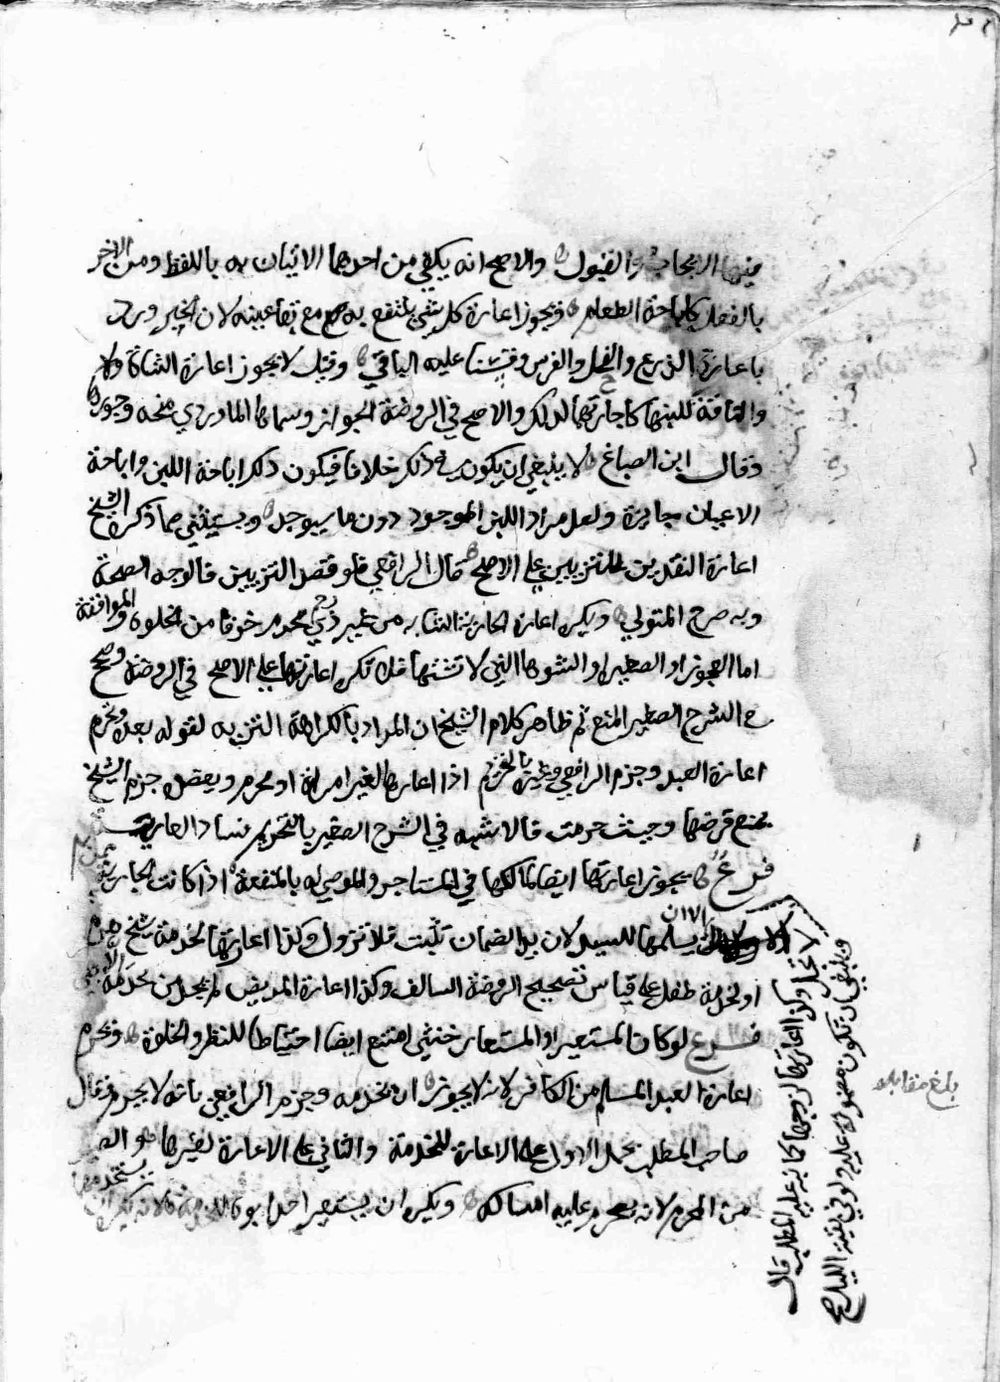 فيها الايجاب والقبول والاصح انه يكفي من احدهما الاتيان به باللفظ ومن الاخر
بالفعل كاباحة الطعام ويجوز اعارة كل شي ينتفع به مع بقا عينه لان الخبر ورد
باعارة الذرع والفحل والفرس وقسنا عليه الباقي وقيل لا يجوز اعارة الشاة ولا
والناقة للبنها كاجارتها لذلك والاصح في الروضة الجواز وسماها الماوردي منحه وجوزه
وقال ابن الصباغ لا ينبغي ان يكون في ذلك خلافا فيكون ذلك اباحة اللبن واباحة
الاعيان جايزة ولعل مراد اللبن الموجود دون ما سيوجد ويستثنى مما ذكره الشيخ
اعارة النقدين للتزيين على الاصح قال الرافعي فلو قصد التزيين فالوجه الصحة
وبه صرح المتولي ويكره اعارة الجارية الشابه من غير ذي رحم محرم خوفا من الخلوة والموافقة
اما العجوز او الصغيره او الشوها التي لا تشتها فلا تكره اعارتها على الاصح في الروضة وصح
ع الشرح الصغير المنع ثم ظاهر كلام الشيخ ان المراد بالكراهة التنزيه لقوله بعد ويحرم
اعارة العبد وجزم الرافعي وغيره بالتحريم اذا اعارها لغير امراة او محرم ويعضد جزم الشيخ
بمنع قرضها وحيث حرمت قالاشبه في الشرح الصغير بالتحريم فساد العارية
فرع يجوز اعارتها ايضا لمالكها في المستاجر والموصي له بالمنفعة اذا كانت الجارية
الان يسلمها للسيد لان يد الضمان تثبت فلا تزول وكذا اعارتها لخدمة شيخ هرم
او لخدمة طفل على قياس تصحيح الروضة السالف وكذا اعارة المريض لم يجد من يخدمه
فرع لو كان المستعير او المستعار خنثى امتنع ايضا احتياطا للنظر والخلوة ويحرم
اعارة العبد المسلم من الكافر لانه لا يجوز ان يخدمه وجزم الرافعي بانه لا يحرم وقال
صاحب المطلب يحمل الاول على الاعارة للخدمة والثاني على الاعارة لغيرها والصيد
من المحرم لانه يحرم عليه امساكه ويكره ان يستعير احد ابويه للخدمة لانه يكره ان يستخدمهما
وكذا اعارتها لزوجها كما نبه عليه المطلب قال
وينبغي ان تكون مضمونة عليه ولو في بقية الليل
بلغ مقابله